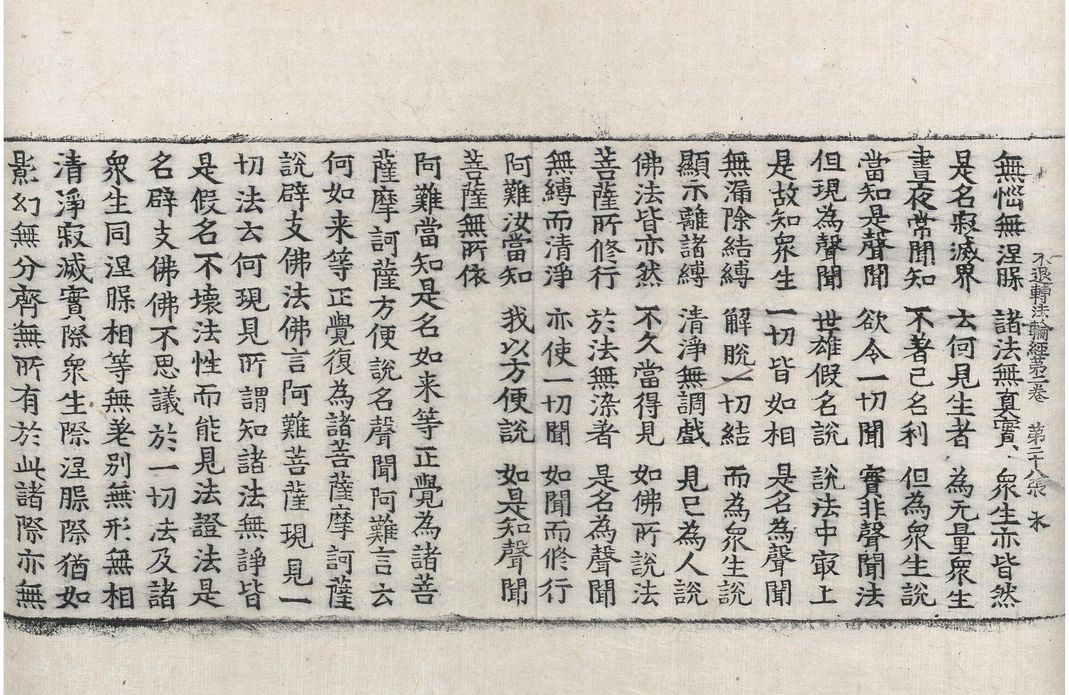 不退轉法輪經苐二卷 第二十八張 木
無惱無涅槃 諸法無真實 衆生亦皆然
是名寂滅界 云何見生者 為无量衆生
晝夜常聞知 不著己名利 但為衆生說
當知是聲聞 欲令一切聞 實非聲聞法
但現為聲聞 世雄假名說 說法中㝡上
是故知衆生 一切皆如相 是名為聲聞
無漏除結縛 解脫一切結 而為衆生說
顯示離諸縛 清淨無調戲 見已為人說
佛法皆亦然 不久當得見 如佛所說法
菩薩所修行 於法無染著 是名為聲聞
無縛而清淨 亦使一切聞 如聞而修行
阿難汝當知 我以方便說 如是知聲聞
菩薩無所依
阿難當知是名如来等正覺為諸菩
薩摩訶薩方便說名聲聞阿難言云
何如来等正覺復為諸菩薩摩訶薩
說辟支佛法佛言阿難菩薩現見一
切法云何現見所謂知諸法無諍皆
是假名不壞法性而能見法證法是
名辟支佛佛不思議於一切法及諸
衆生同涅槃相等無差別無形無相
清淨寂滅實際衆生際涅槃際猶如
影幻無分齊無所有於此諸際亦無